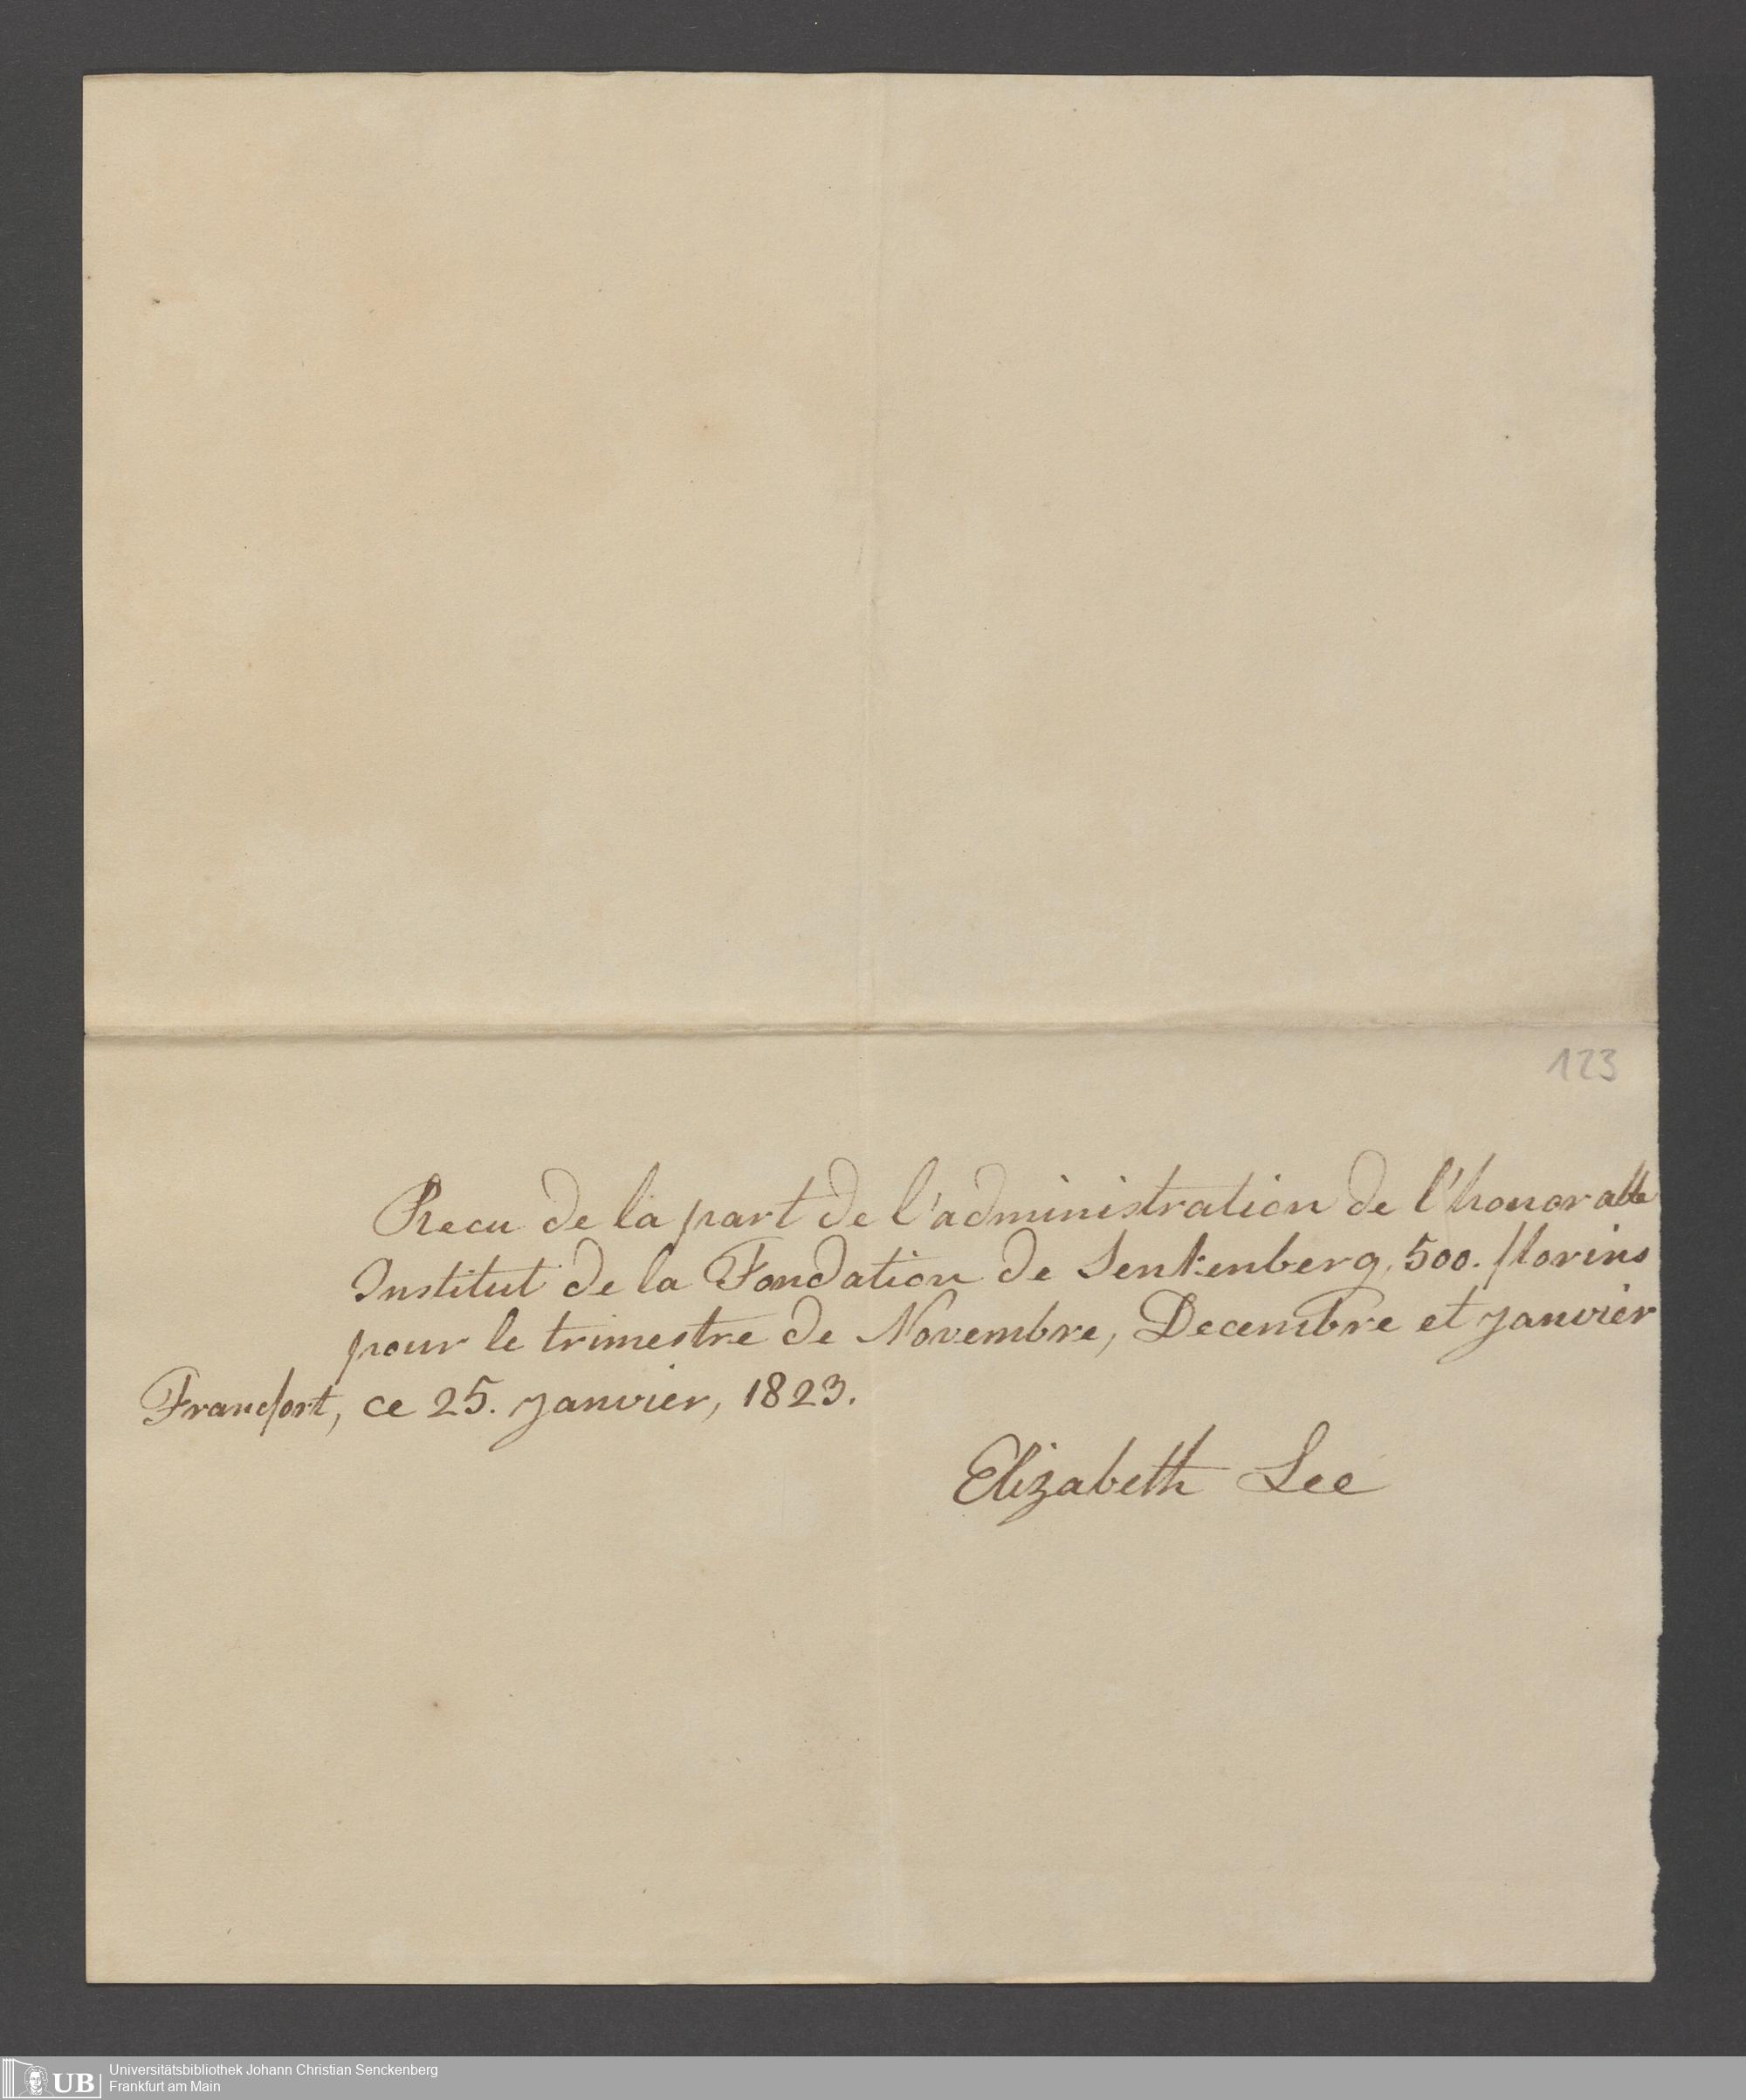 123
Recu de la part de l'administration de l'honorable
Institut de la Fondation de Senkenberg, 500. florins
pour le trimestre de Novembre, Decembre et Janvier
Francfort, ce 25. Janvier, 1823.
Elizabeth Lee
UB
Universitätsbibliothek Johann Christian Senckenberg
Frankfurt am Main